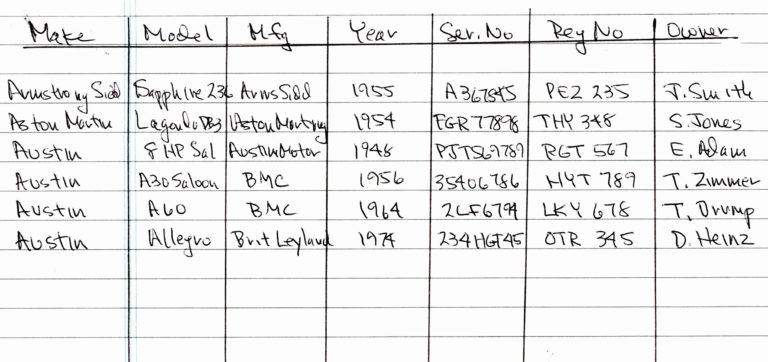 Make Model Mfg Year Ser. No Reg No Owner
Armstrong Sidd Sapphire 236 Arms Sidd 1955 A367845 PEZ 235 J. Smith
Aston Martin Lagonda DB3 Aston Martin 1954 FGR77898 THY 348 S. Jones
Austin 8 HP Sal Austin Motor 1948 PJT569789 RGT 567 E. Adam
Austin A30 Saloon BMC 1956 35406786 MYT 789 T. Zimmer
Austin A60 BMC 1964 2LF6794 LKY 678 T. Drump
Austin Allegro Brit Leyland 1974 234HGT45 OTR 345 D. Heinz